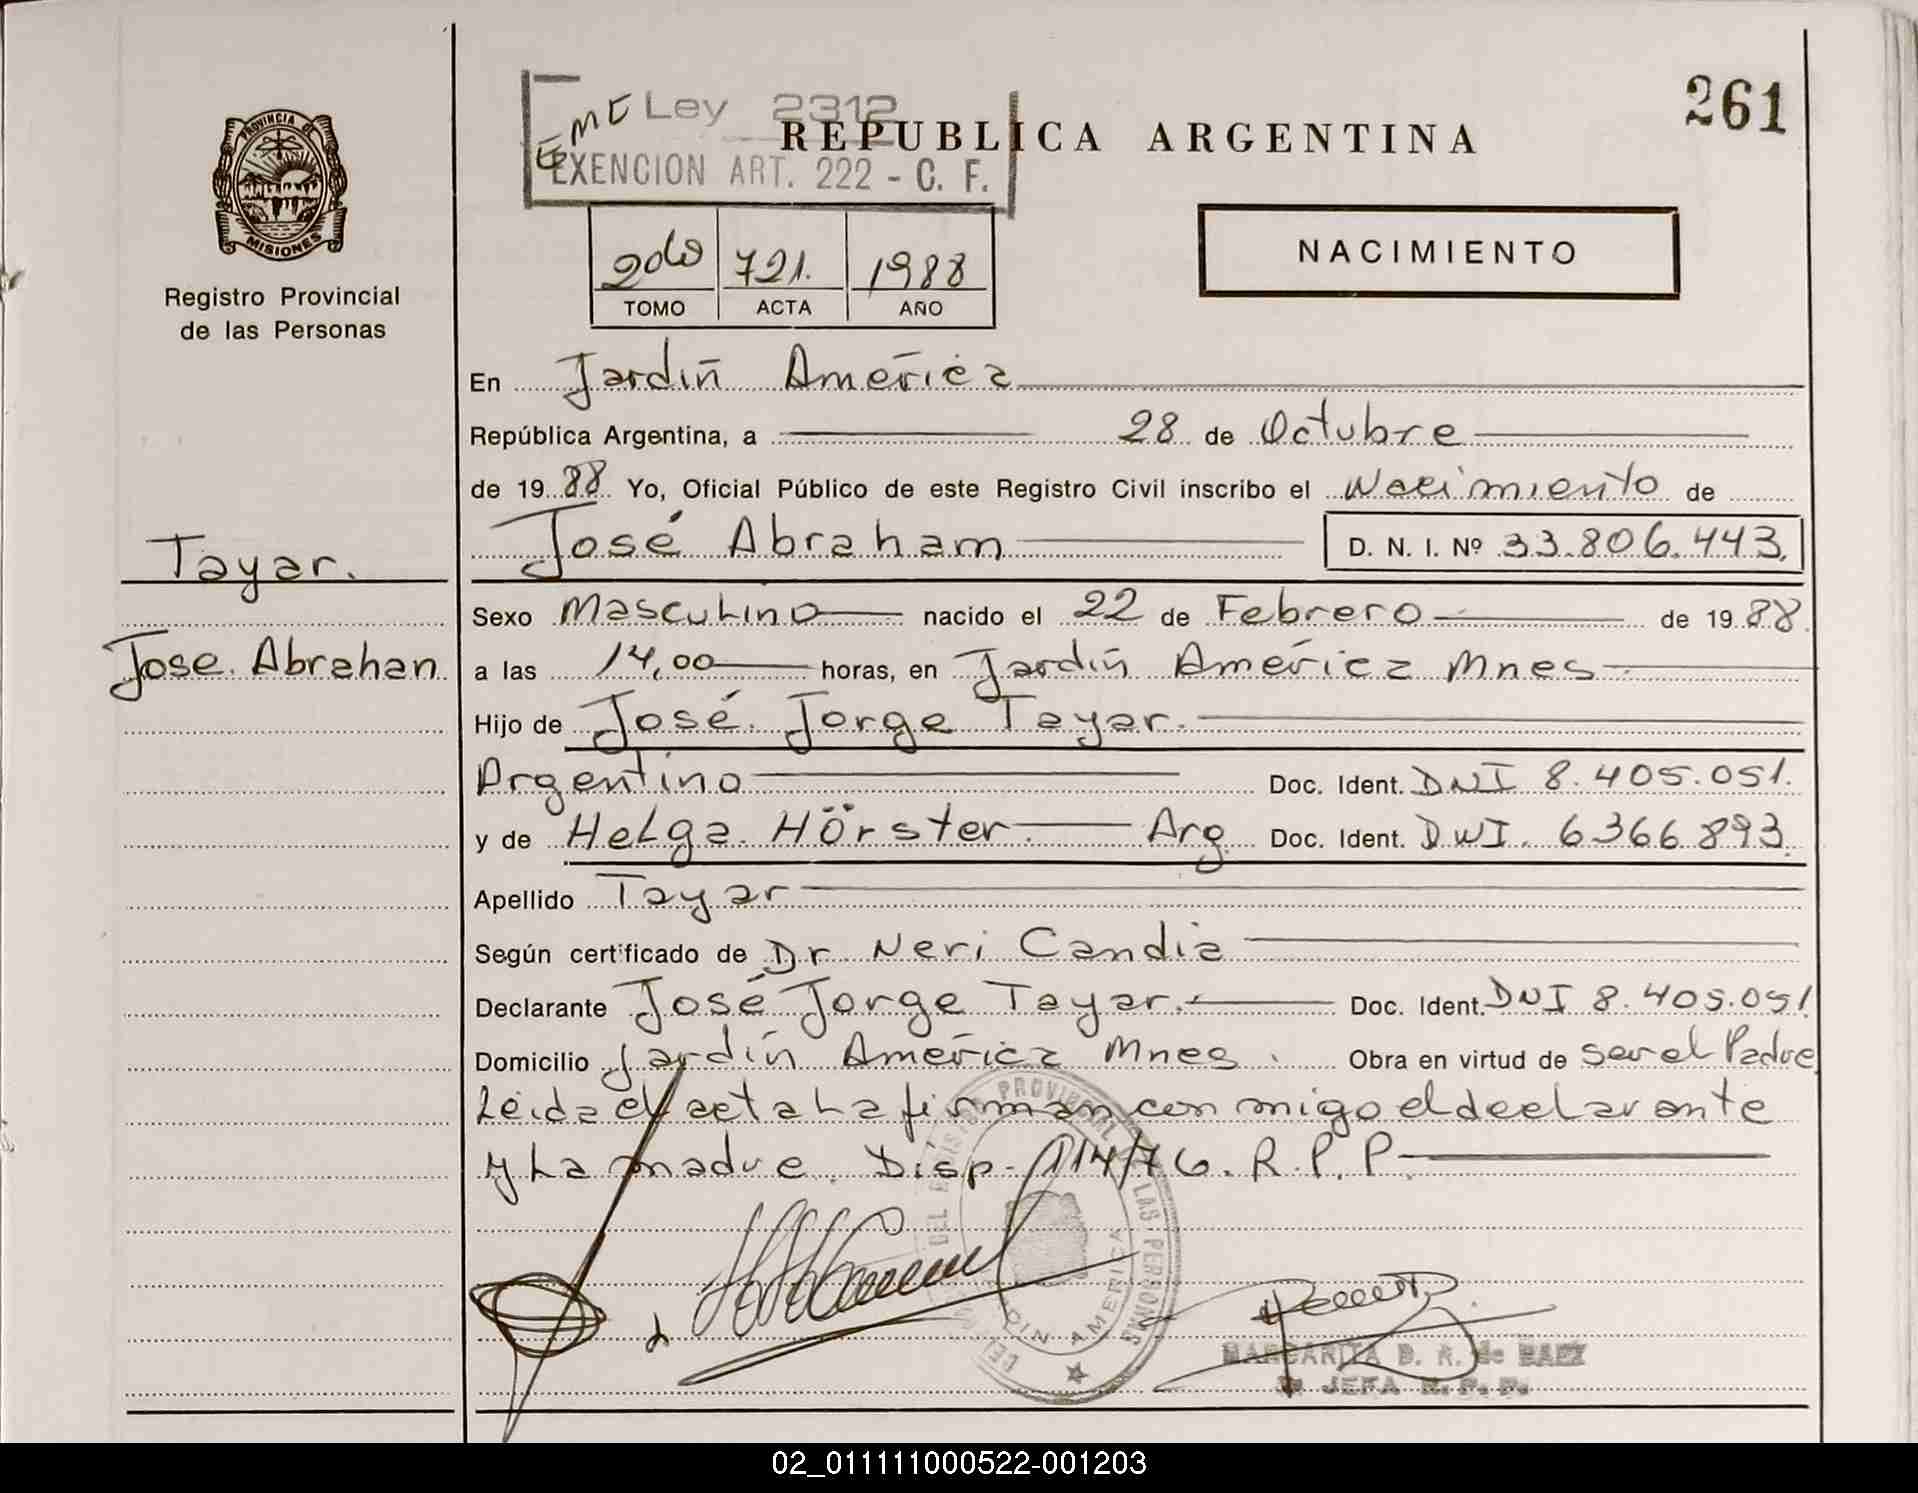 261
Ley 2312
REPUBLICA ARGENTINA
EXENCION ART. 222 - C. F.
PROVINCIA DE
MISIONES
Registro Provincial
de las Personas
NACIMIENTO
2do 721. 1988
TOMO ACTA AÑO
En Jardín América
República Argentina, a 28 de Octubre
de 1988 Yo, Oficial Público de este Registro Civil inscribo el Nacimiento de
José Abraham D. N. I. Nº 33.806.443.
Tayar.
Sexo Masculino nacido el 22 de Febrero de 1988.
Jose Abrahan
a las 14,00 horas, en Jardín América Mnes
Hijo de José Jorge Tayar.
Argentino Doc. Ident. DNI 8.405.051.
y de Helga Hörster. Arg. Doc. Ident. DNI. 6366.893.
Apellido Tayar
Según certificado de Dr Neri Candia
Declarante José Jorge Tayar. Doc. Ident. DNI 8.405.051
Domicilio Jardín América Mnes. Obra en virtud de ser el Padre
Leida el acta la firman con migo el declarante
y la madre. Disp. 114/76. R.P.P.
MARGARITA D. R. de BAEZ
JEFA R. P. P.
02_011111000522-001203